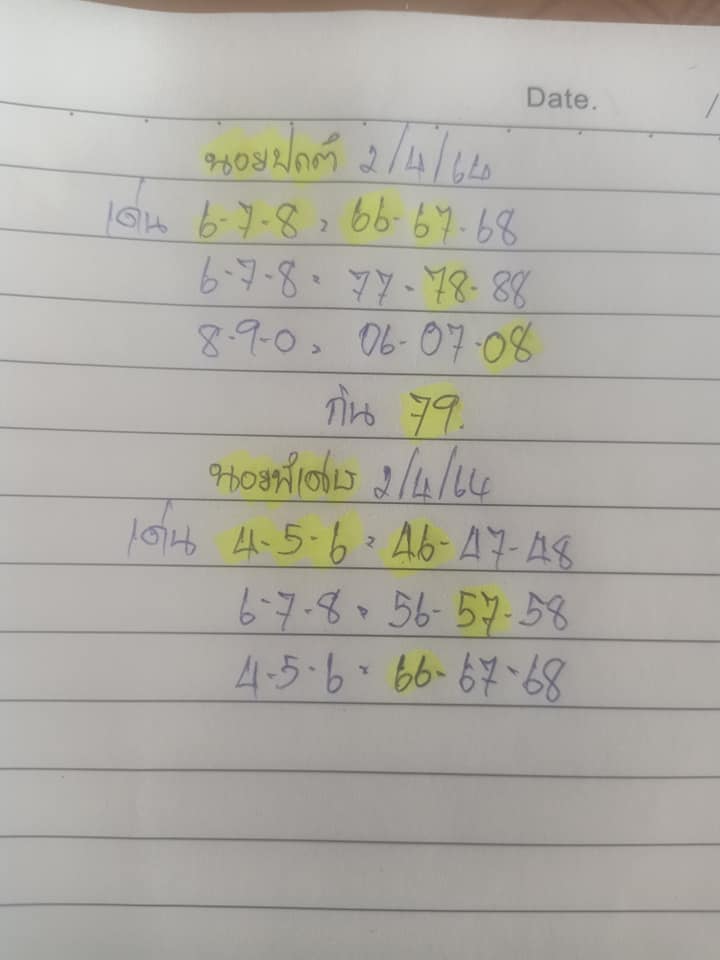 Date. /
นอยปกติ 2/4/64
เด่น 6-7-8 = 66-67-68
6-7-8 = 77-78-88
8-9-0 = 06-07-08
กัน 79.
นอยพิเศษ 2/4/64
เด่น 4-5-6 = 46-47-48
6-7-8 = 56-57-58
4-5-6 = 66-67-68